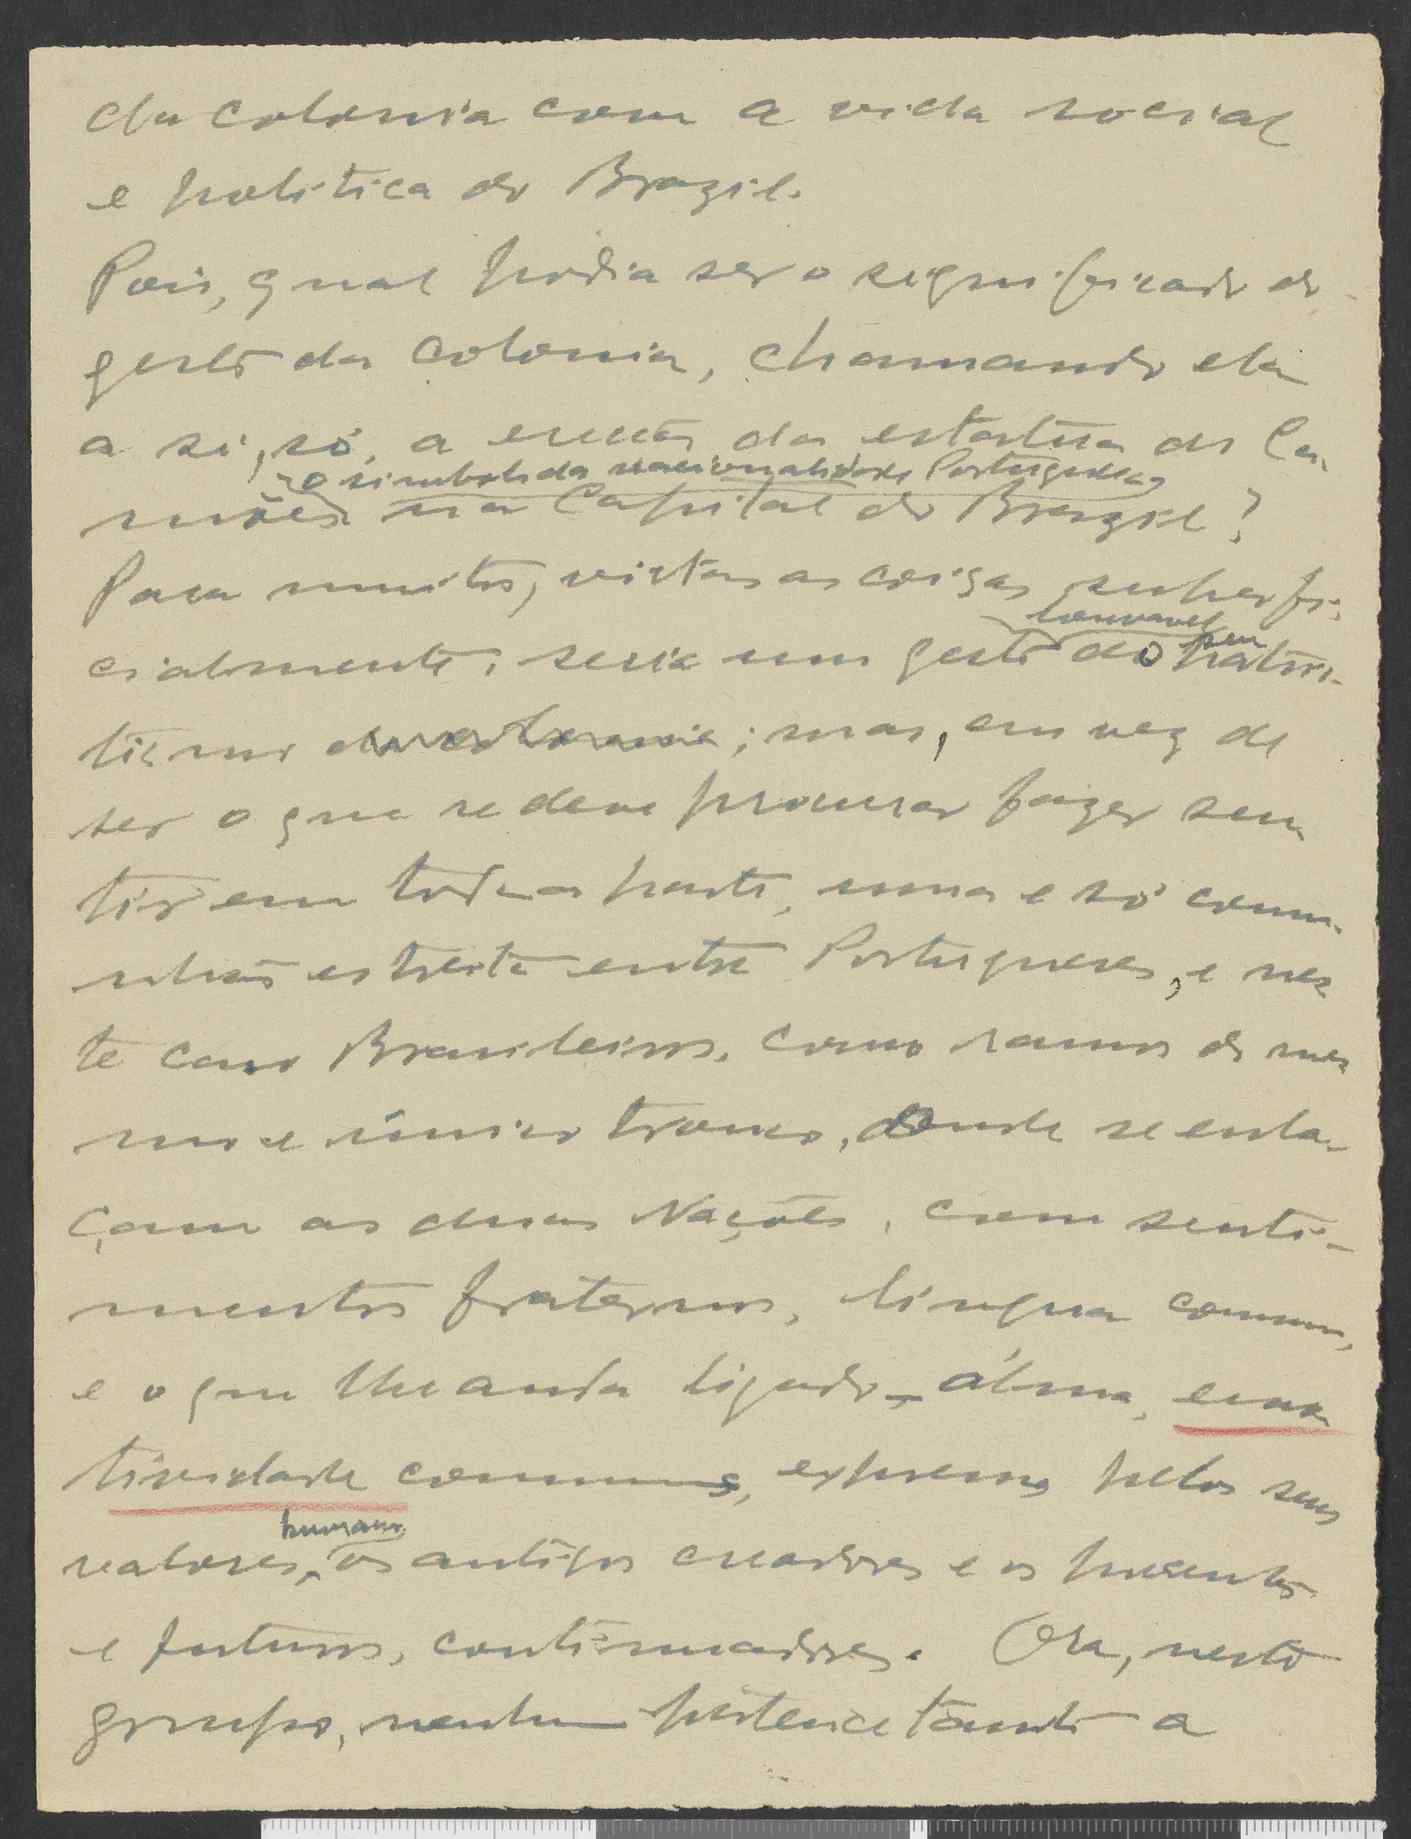 da colonia com a vida social
e politica do Brazil.
Pois, qual podia ser o significado do
gesto da colonia, chamando ela
a si, só, a ereção da estatua de Ca-
o simbolo da nacionalidade Portuguesa,
mões na Capital do Brazil?
Para muitos, vistas as coisas superfi-
louvavel
cialmente, seria um gesto do seu patrio-
tismo da colonia; mas, em vez de
ser o que se deve procurar fazer sen-
tir em toda a parte, uma e só comu-
nhão estreita entre Portugueses, e nes-
te caso Brasileiros, como ramos do mes-
mo e unico tronco, donde se enla-
çam as duas Nações, com senti-
mentos fraternos, lingua comum,
e o que lhe anda ligado – álma, emo-
tividade comuns, expressas pelos seus
humanos
valores, os antigos creadores e os presentes
e futuros, continuadores. Ora, neste
grupo, nenhum pertence tanto a